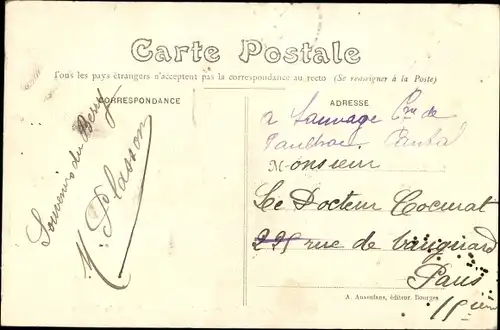 Carte Postale
Tous les pays étrangers n'acceptent pas la correspondance au recto (Se renseigner à la Poste)
CORRESPONDANCE
Souvenirs du Berry
ADRESSE
a Sauvage Cne de
Paulhac Cantal
Monsieur
Le Docteur Cocurat
225 rue de Vaugirard
Paris
15 ième
A. Auxenfans, éditeur, Bourges